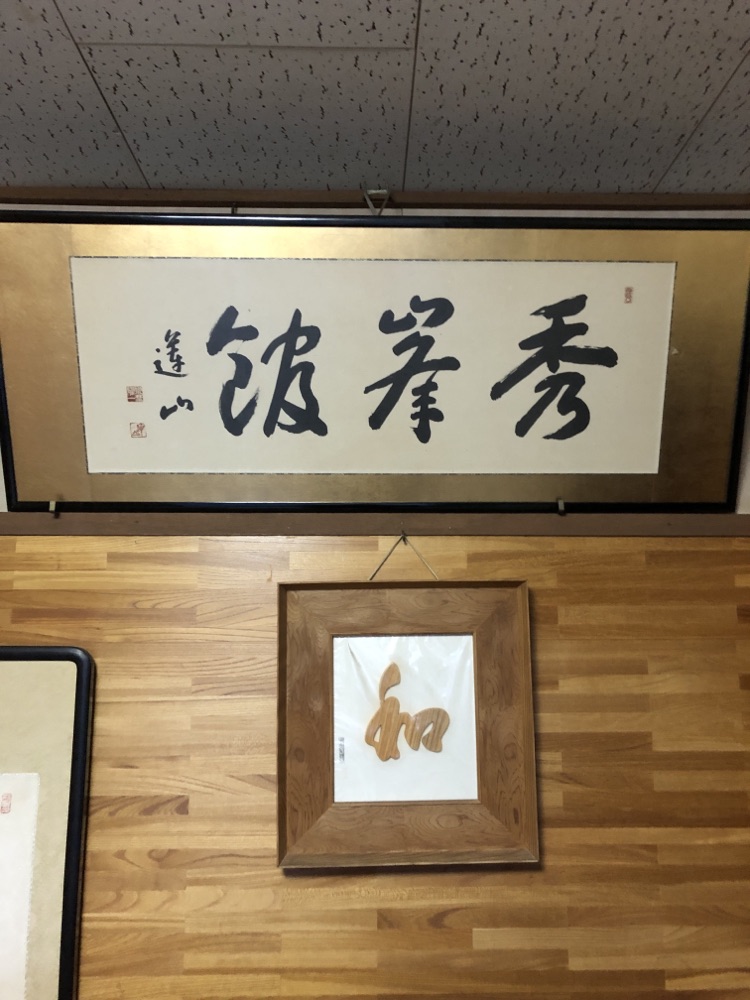 秀峯館
蓮山
和